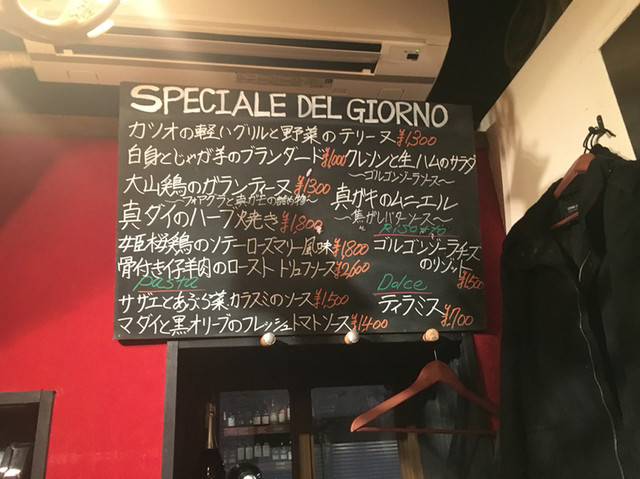 SPECIALE DEL GIORNO
カツオの軽いグリルと野菜のテリーヌ ¥1,300
白身とじゃが芋のブランダード ¥1,000
クレソンと生ハムのサラダ
〜ゴルゴンゾーラソース〜
大山鶏のガランティーヌ ¥1300
〜フォアグラと
真ガキのムニエール
〜焦がしバターソース〜
真ダイのハーブ焼き ¥1,800
姫桜鶏のソテーローズマリー風味 ¥1,800
骨付き仔羊肉のロースト トリュフソース ¥2,600
Risotto
ゴルゴンゾーラチーズ
のリゾット ¥1,500
Pasta
サザエとあぶら菜、カラスミのソース ¥1,500
マダイと黒オリーブのフレッシュトマトソース ¥1400
Dolce
ティラミス ¥700